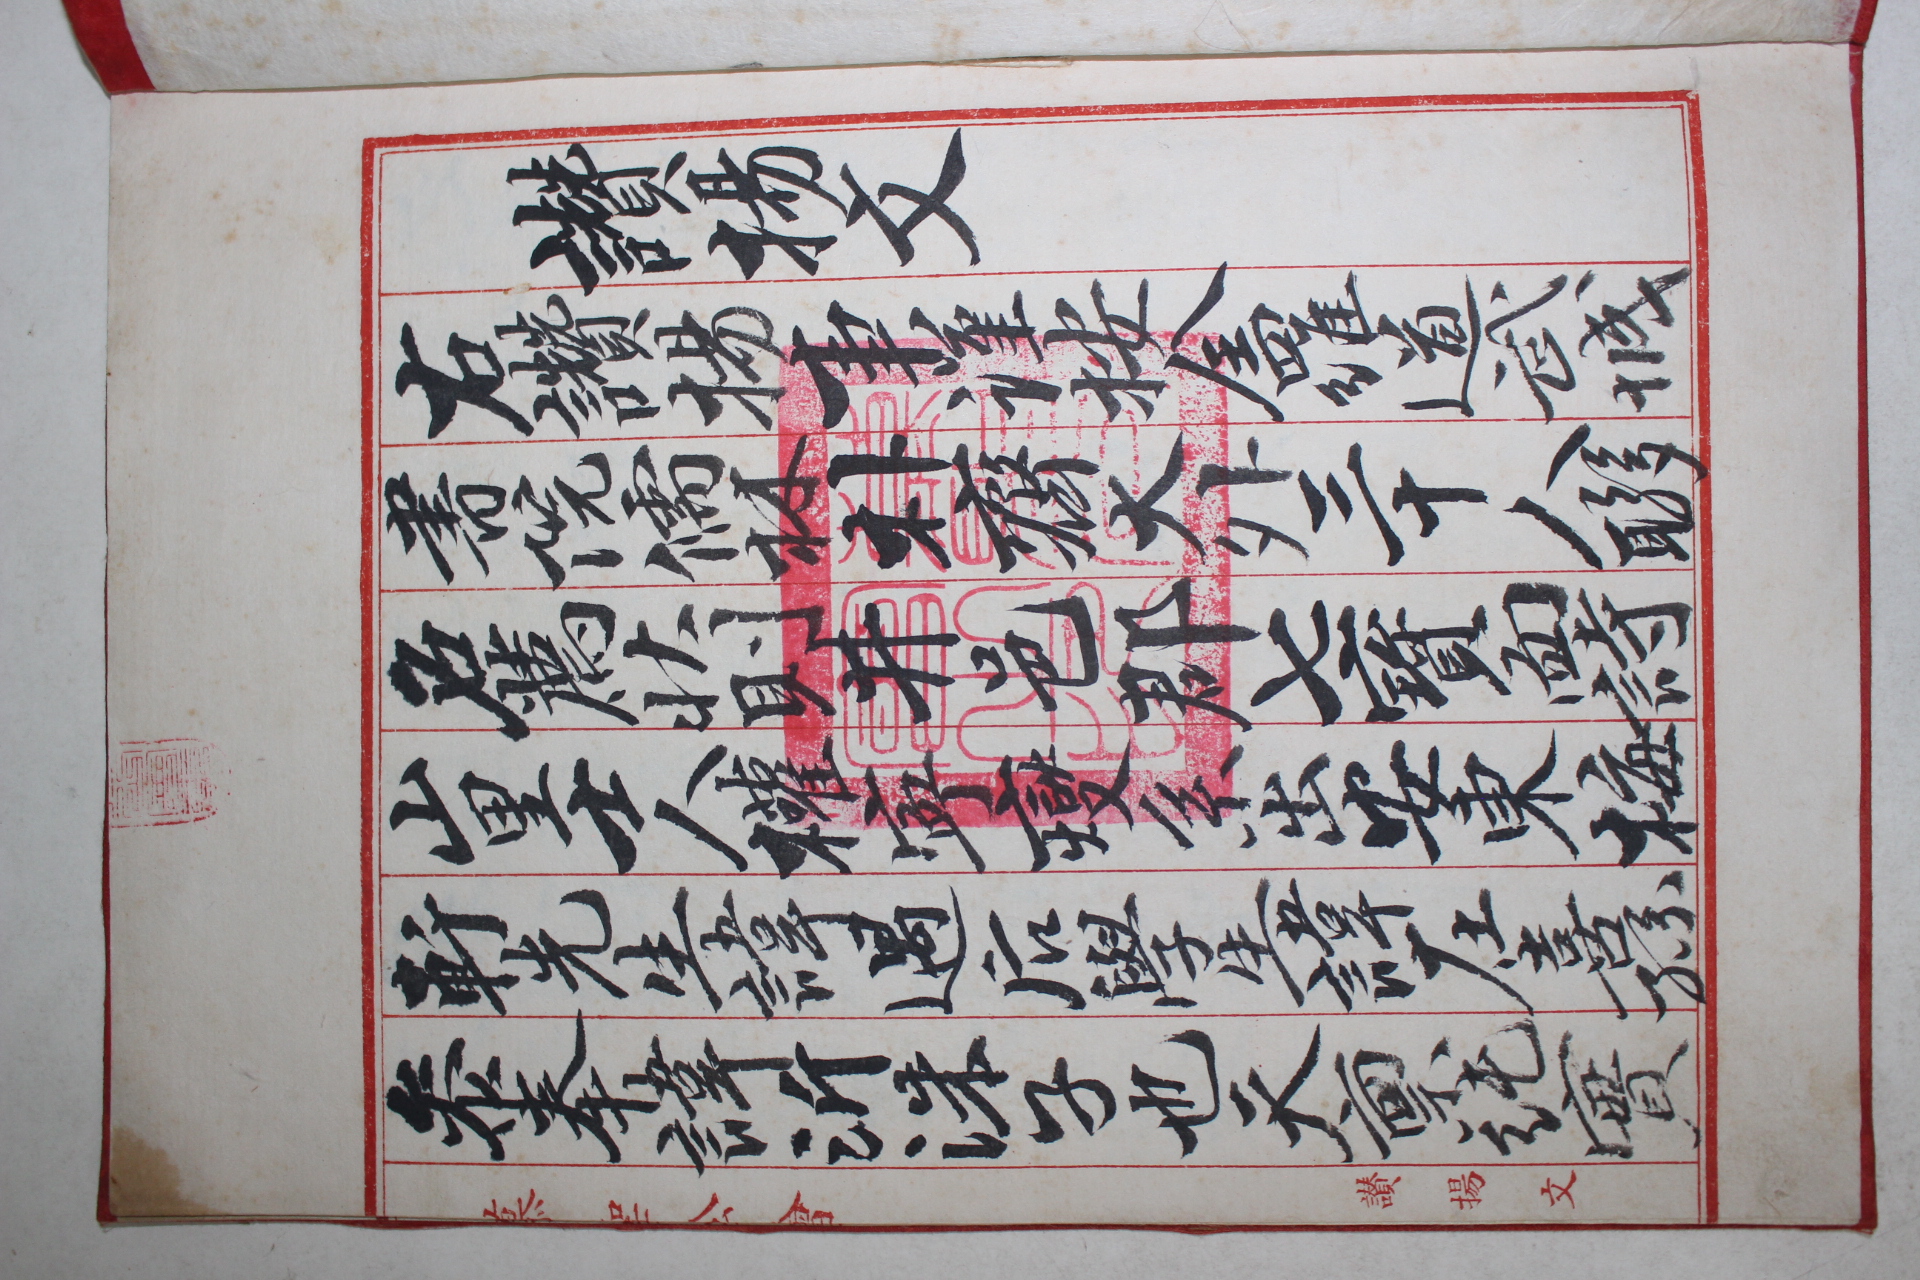 讚揚文
右讚揚事謹按全羅道武城
書院儒林朴齊大外三十人聯
名薦狀則井邑郡七寶面詩
山里士人權寧燮系出安東梅
軒先生諱遇后學生諱在喜孫
參奉諱泝洙子也天稟純實
慕聖公會
讃揚文